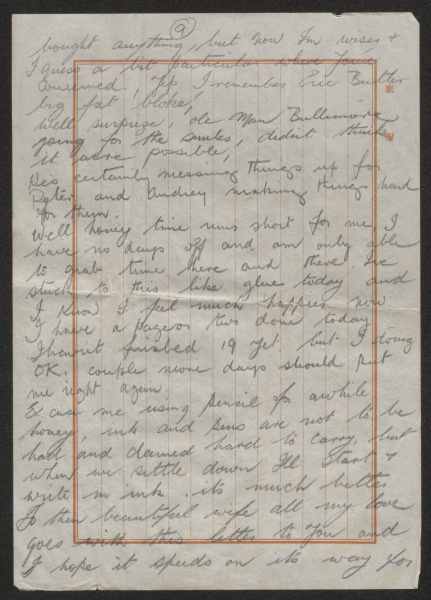 9
bought anything, but now I'm wiser &
I guess a bit particular where You're
concerned, Yes I remember Eric Butler
big fat bloke,
Well surprise, ole Man Bullimore
going for the smiles, didn't think
it were possible,
He's certainly messing things up for
Peter and Audrey making things hard
for them.
Well honey time runs short for me, I
have no days off and am only able
to grab time here and there. I've
stuck to this like glue today and
I know I feel much happier now
I have a page or two done today
I haven't finished 19 yet. but I doing
OK. couple more days should put
me right again.
Excuse me using pencil for awhile
honey, ink and pens are not to be
had and darned hard to carry, but
when we settle down I'll start &
write in ink. its much better
So then beautiful wife all my love
goes with this letter to You and
I hope it speeds on its way for